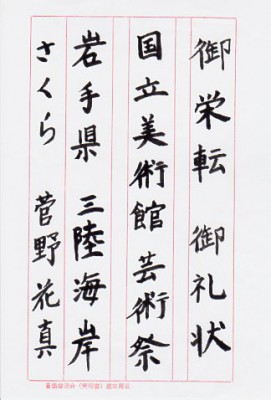 御栄転 御礼状
国立美術館 芸術祭
岩手県 三陸海岸
さくら 菅野花真